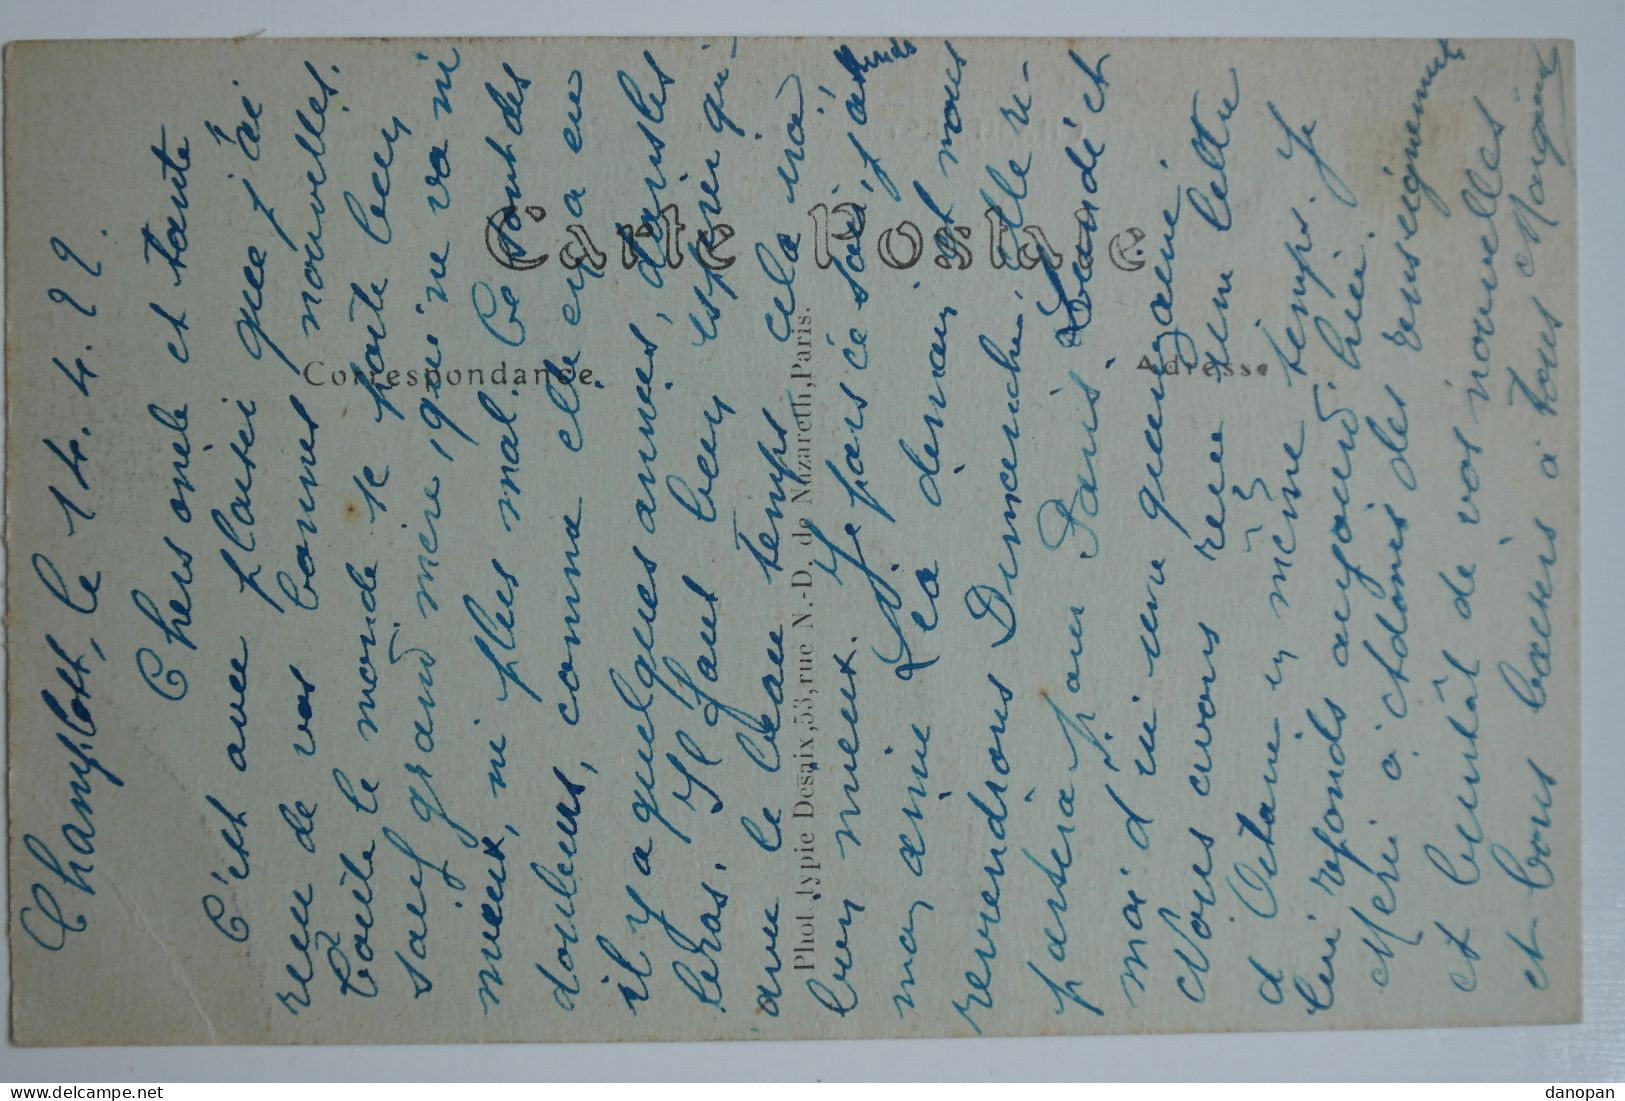 Champlost, le 14.4.22.
Chers oncle et tante
C'est avec plaisir que j'ai
reçu de vos bonnes nouvelles.
Toute le monde se porte bien
sauf grand mère qui ne va ni
mieux, ni plus mal. Ce sont des
douleurs, comme elle en a eu
il y a quelques années, dans les
bras. Il faut bien espérer qu'-
avec le beau temps cela ira
bien mieux. Je pars ce soir, j'attends
mon amie Léa demain et nous
reviendrons Dimanche. Elle re-
partira pour Paris Lundi et
moi d'ici une quinzaine.
Nous avons reçu une lettre
d'Octavie en même temps. Je
lui réponds aujourd'hui.
Merci à Adonis des renseignements
et bientôt de vos nouvelles
et bons baisers à tous
Carte Postale
Correspondance
Adresse
Phototypie Desaix, 53, rue N.-D. de Nazareth, Paris.
delcampe.net
danopan